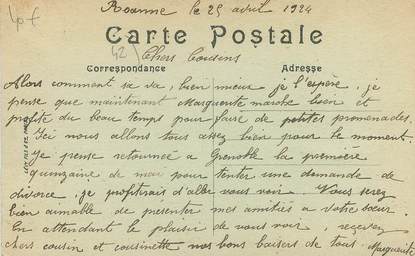 40 f
Roanne le 25 avril 1924
Carte Postale
42
Chers Cousins
Correspondance
Adresse
Alors comment sa va, bien mieux je l'espère, je
pense que maintenant Marguerite marche bien et
profite du beau temps pour faire de petites promenades.
Ici nous allons tous assez bien pour le moment.
Je pense retourner a Grenoble la première
quinzaine de mai pour tenter une demande de
divorce, je profiterai d'aller vous voir. Vous serez
bien aimable de présenter mes amitiés a votre sœur.
En attendant le plaisir de vous voir, recevez
chers cousin et cousinette nos bons baisers de tous. Marguerite